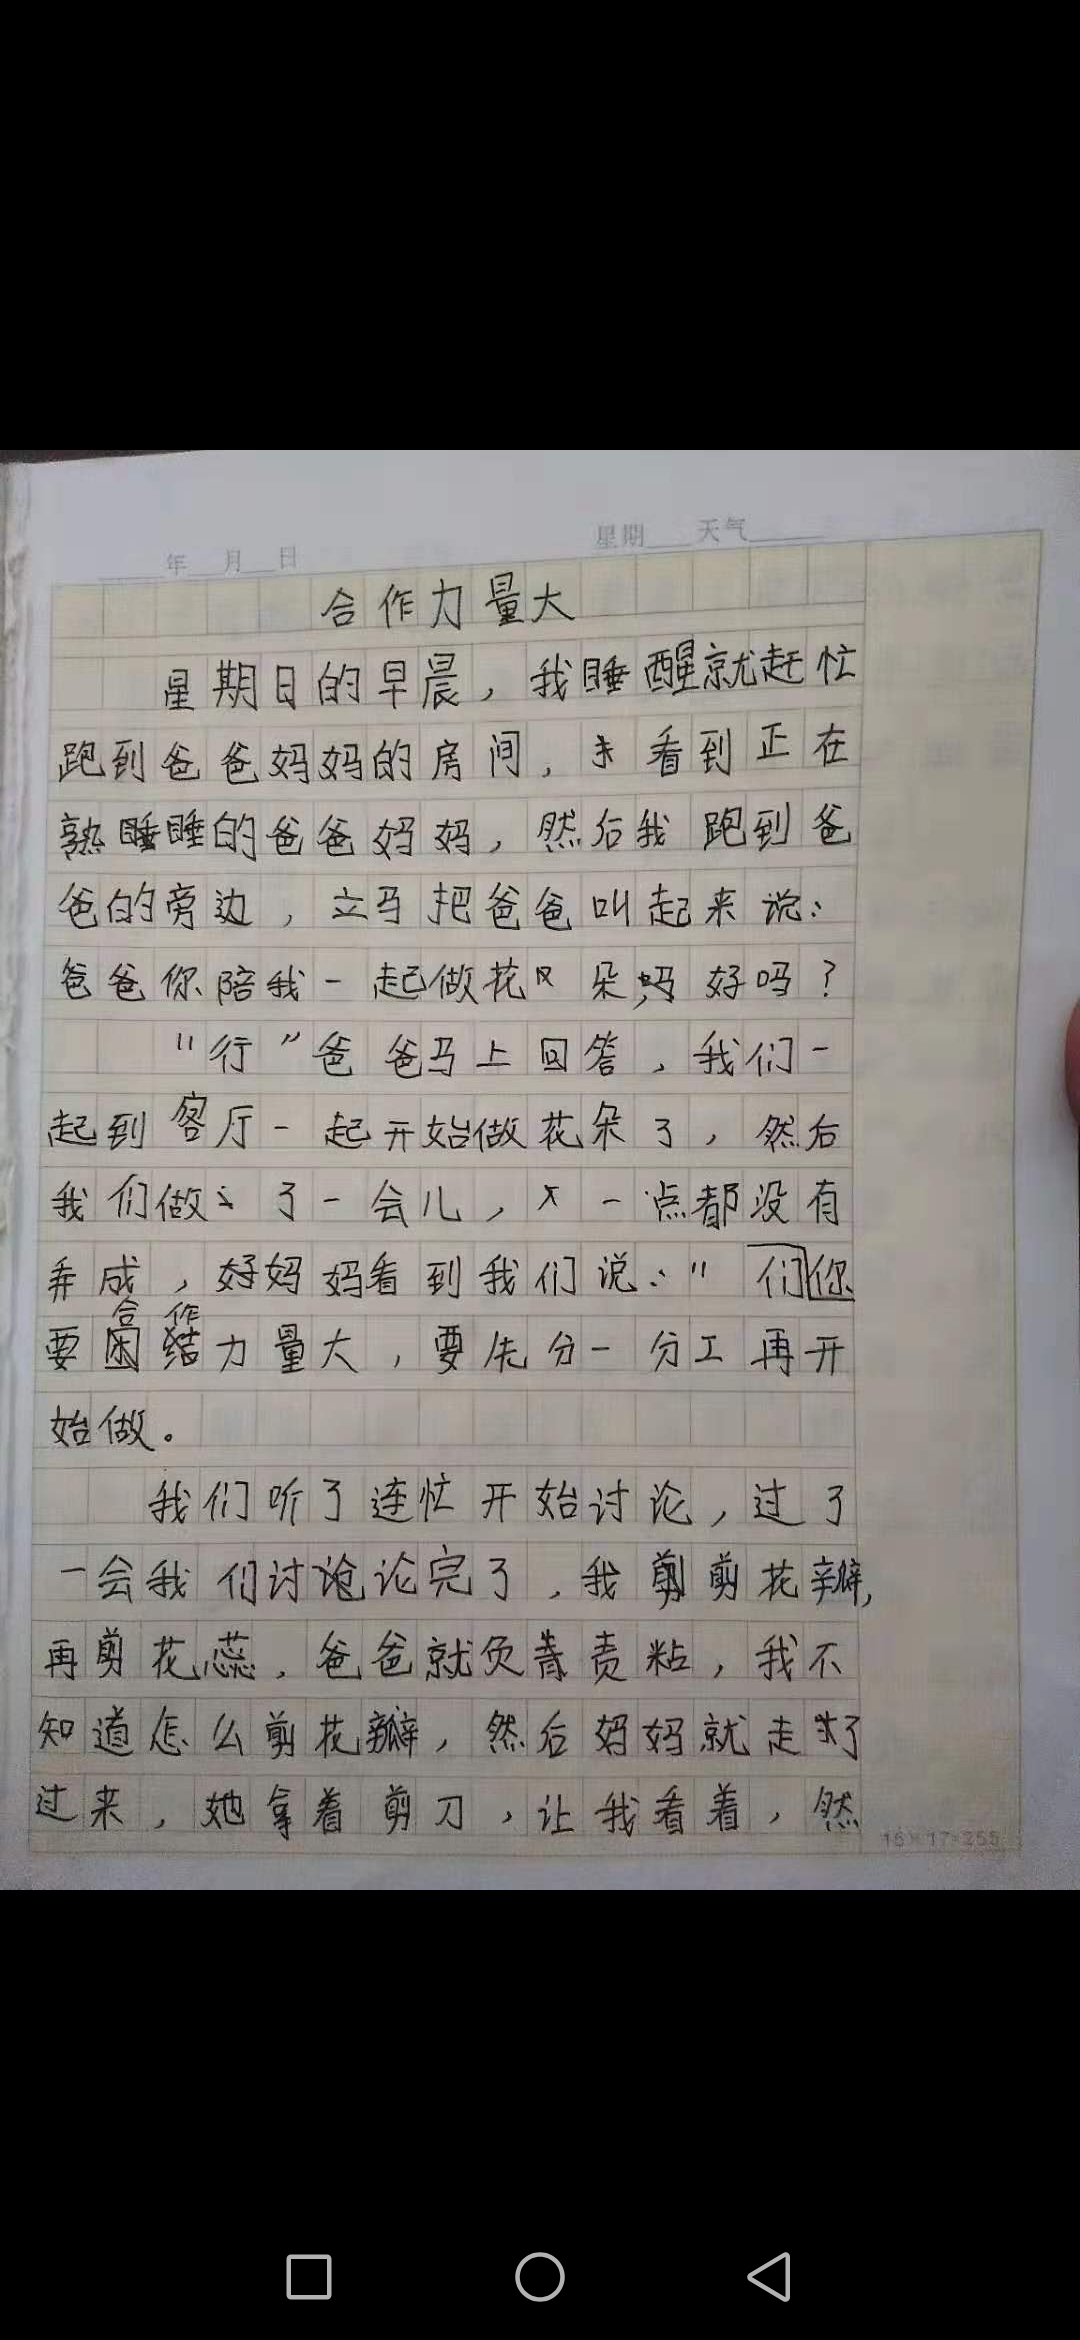 年 月 日 星期 天气
合作力量大
星期日的早晨，我睡醒就赶忙
跑到爸爸妈妈的房间，看到正在
熟睡睡的爸爸妈妈，然后我跑到爸
爸的旁边，立马把爸爸叫起来说：
爸爸你陪我一起做花朵，妈好吗？
“行”爸爸马上回答，我们一
起到客厅一起开始做花朵了，然后
我们做了一会儿，一点都没有
弄成，好妈妈看到我们说：“们你
合作
要团结力量大，要先分一分工再开
始做。
我们听了连忙开始讨论，过了
一会我们讨论论完了，我剪剪花瓣，
再剪花蕊，爸爸就负责责粘，我不
知道怎么剪花瓣，然后妈妈就走了
过来，她拿着剪刀，让我看着，然
16×17=255